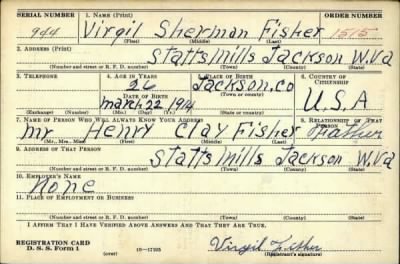 SERIAL NUMBER 1. NAME (Print) ORDER NUMBER
944 Virgil Sherman Fisher 1515
(First) (Middle) (Last)
2. ADDRESS (Print)
Statts Mills Jackson W.Va
(Number and street or R. F. D. number) (Town) (County) (State)
3. TELEPHONE 4. AGE IN YEARS 5. PLACE OF BIRTH 6. COUNTRY OF CITIZENSHIP
26 Jackson.co
DATE OF BIRTH (Town or county)
March 22 1914 U.S.A
(Exchange) (Number) (Mo.) (Day) (Yr.) (State or country)
7. NAME OF PERSON WHO WILL ALWAYS KNOW YOUR ADDRESS 8. RELATIONSHIP OF THAT PERSON
Mr Henry Clay Fisher Father
(Mr., Mrs., Miss) (First) (Middle) (Last)
9. ADDRESS OF THAT PERSON
Statts Mills Jackson W.Va
(Number and street or R. F. D. number) (Town) (County) (State)
10. EMPLOYER'S NAME
None
11. PLACE OF EMPLOYMENT OR BUSINESS
(Number and street or R. F. D. number) (Town) (County) (State)
I AFFIRM THAT I HAVE VERIFIED ABOVE ANSWERS AND THAT THEY ARE TRUE.
REGISTRATION CARD
D. S. S. Form 1 (over) 16-17105 Virgil Fisher
(Registrant's signature)